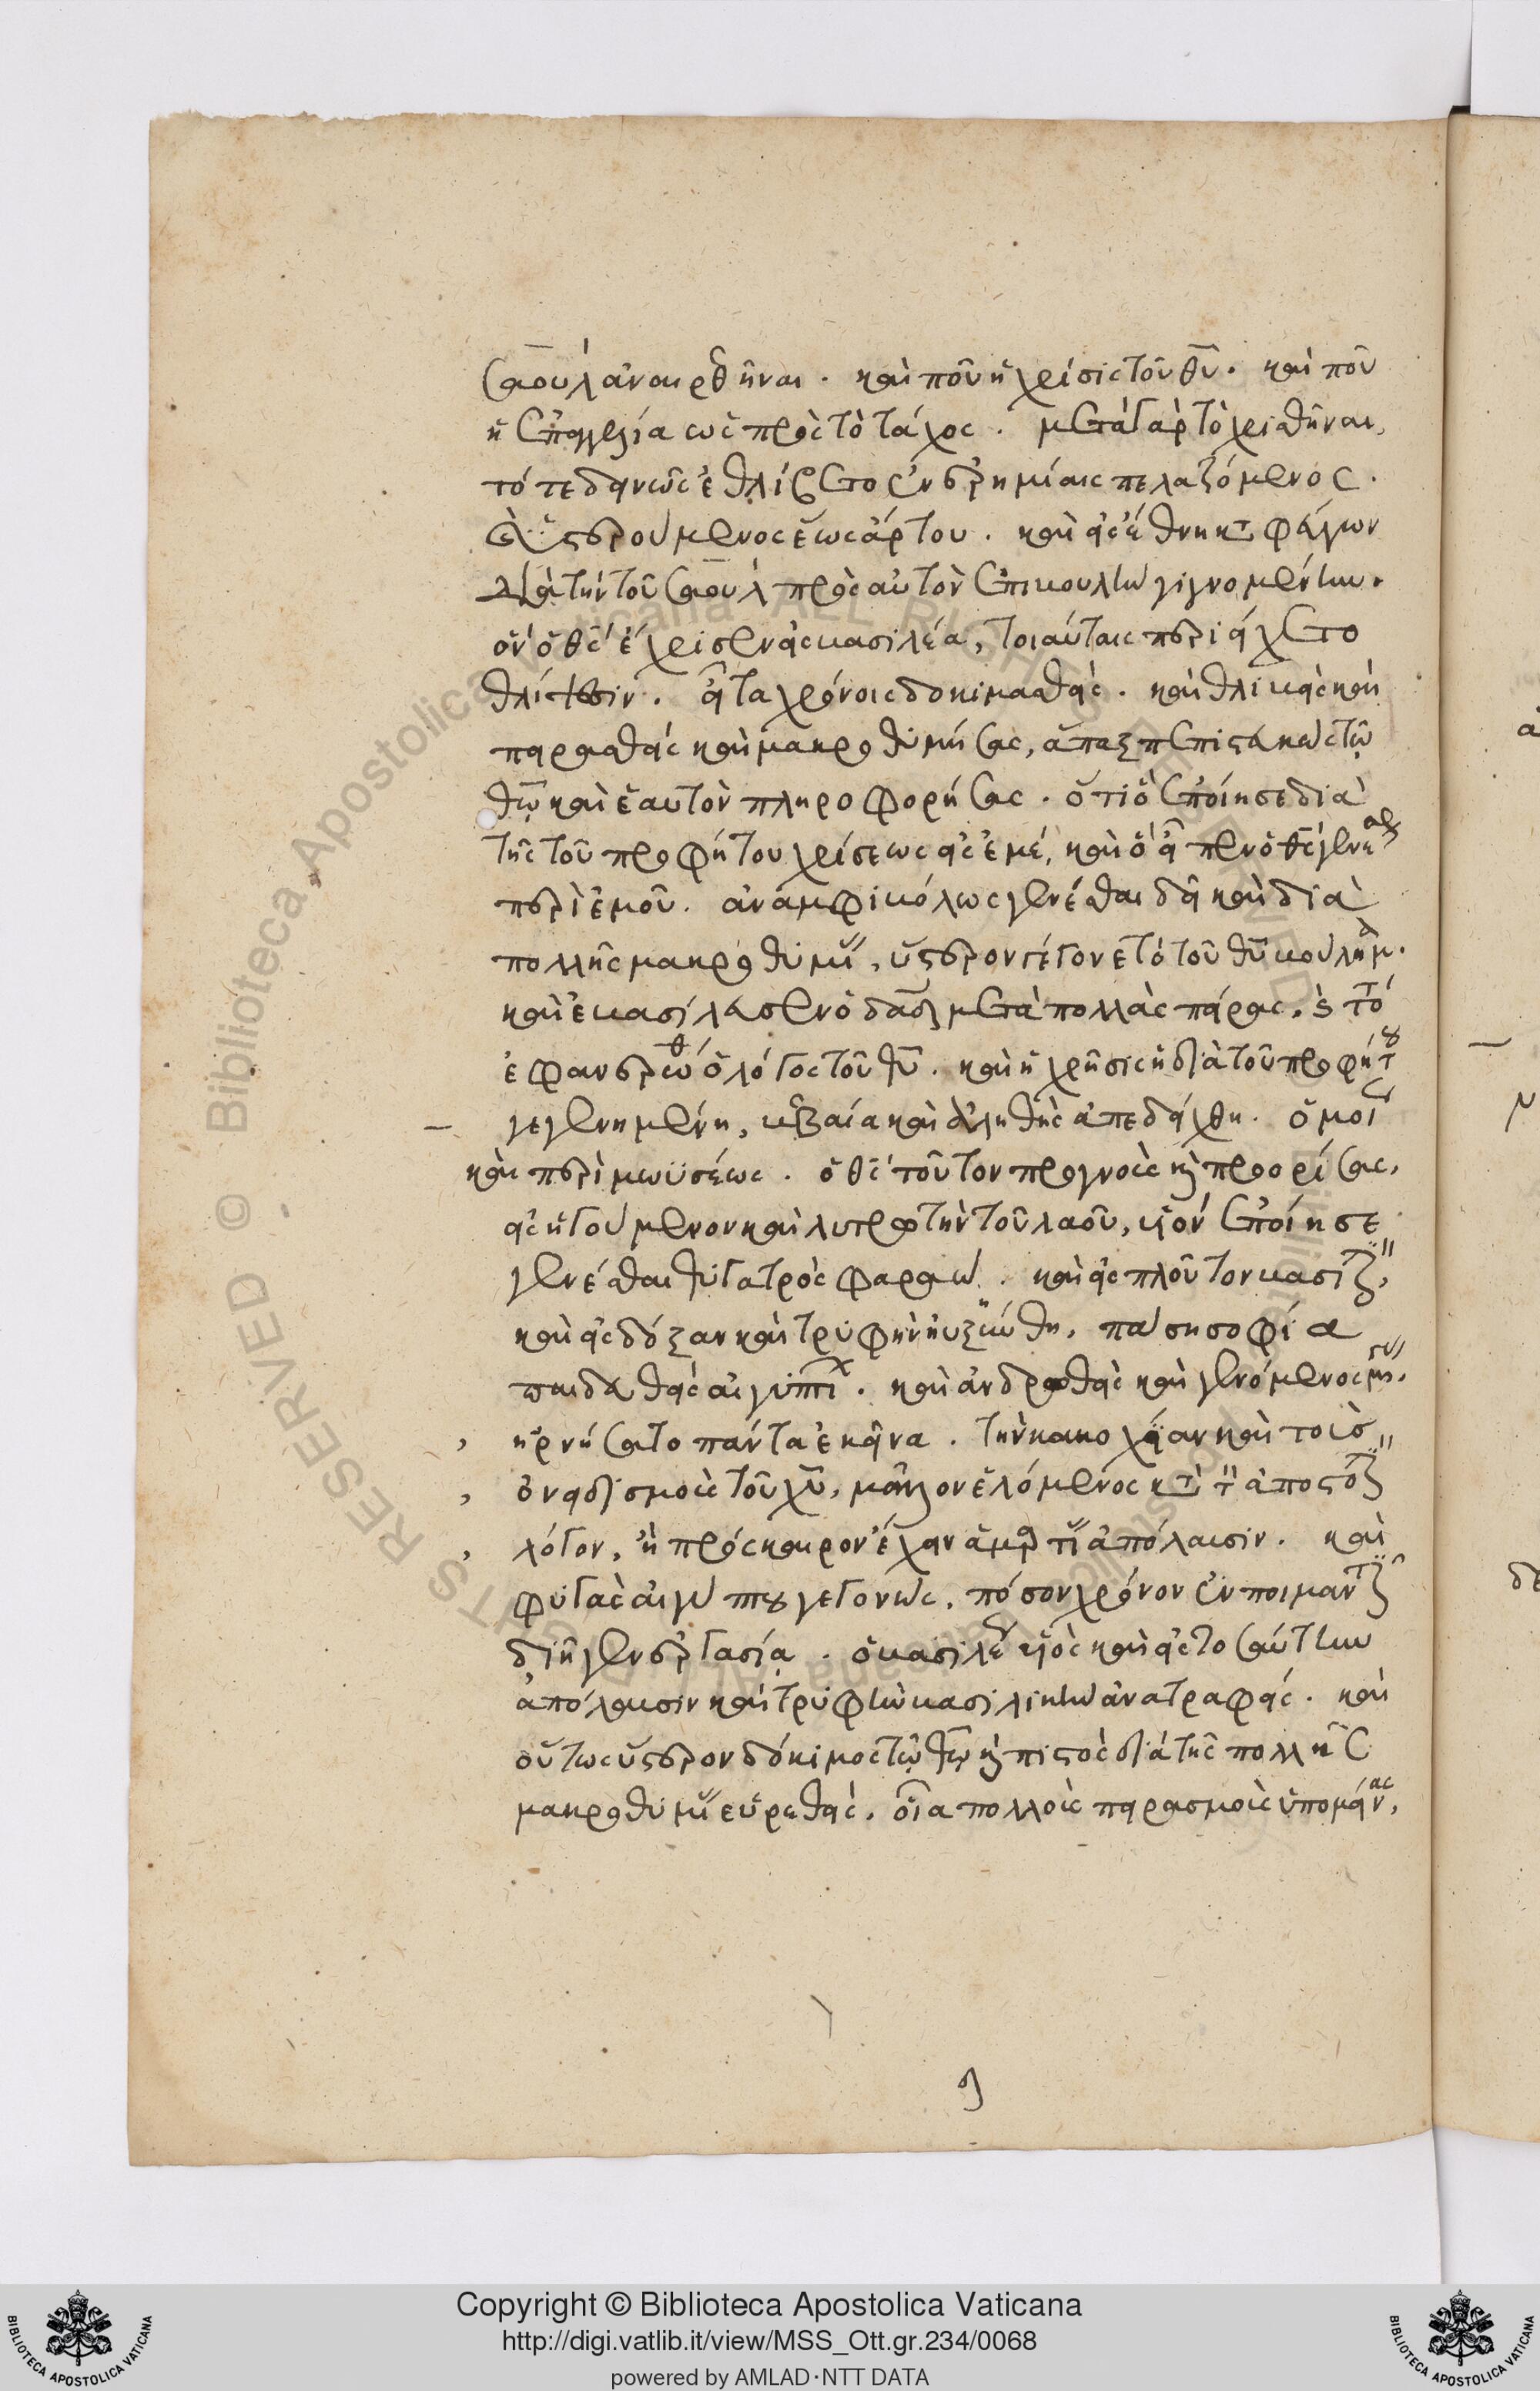 σαοὺλ ἀναιρεθῆναι. καὶ ποῦ ἡ χρίσις τοῦ θυ. καὶ ποῦ
ἡ ἐπαγγελία ὡς πρὸς τὸ τάχος. μετὰ γὰρ τὸ χρισθῆναι,
τότε δεινῶς ἐθλίβετο ἐν ἐρημίαις πελαζόμενος.
ὑστερούμενος ἕως ἄρτου. καὶ εἰς ἔθνη φεύγων
διὰ τὴν τοῦ σαοὺλ πρὸς αὐτὸν ἐπιβουλὴν γιγνομένην.
ὃν ὁ θς ἔχρισεν εἰς βασιλέα, τοιαύταις περιείχετο
θλίψεσιν. εἶτα χρόνοις δοκιμασθεὶς. καὶ θλιβεὶς καὶ
πειρασθεὶς καὶ μακροθυμήσας, ἅπαξ πεπιστευκὼς τῷ
θῶ καὶ ἑαυτὸν πληροφορήσας. ὅτι ὃ ἐποίησε διὰ
τῆς τοῦ προφήτου χρίσεως εἰς ἐμέ, καὶ ὃ εἶπεν ὁ θς γενέσθαι
περὶ ἐμοῦ. ἀναμφιβόλως γενέσθαι δεῖ καὶ διὰ
πολλῆς μακροθυμι, ὕστερον γέγονε τὸ τοῦ θυ βούλημα.
καὶ ἐβασίλευσεν ὁ δαδ μετὰ πολλὰς πείρας, καὶ τότε
ἐφανερώθη ὁ λόγος τοῦ θυ. καὶ ἡ χρῆσις ἡ διὰ τοῦ προφήτου
γεγενημένη, βεβαία καὶ ἀληθὴς ἀπεδείχθη. ὁμοί
καὶ περὶ μωϋσέως. ὁ θς τοῦτον προγνοὺς καὶ προορίσας,
εἰς ἡγούμενον καὶ λυτρωτὴν τοῦ λαοῦ, υἱὸν ἐποίησε
γενέσθαι θυγατρὸς φαραώ. καὶ εἰς πλοῦτον βασι
καὶ εἰς δόξαν καὶ τρυφὴν ηὐξήθη, πάσῃ σοφία
παιδευθεὶς αἰγυπτι. καὶ ἀνδρωθεὶς καὶ γενόμενος μέγας,
ἠρνήσατο πάντα ἐκεῖνα. τὴν κακουχίαν καὶ τοὺς
ὀνειδισμοὺς τοῦ χυ, μᾶλλον ἑλόμενος κατὰ τὸν ἀποστο
λόγον, ἢ πρόσκαιρον ἔχειν ἁμαρτι ἀπόλαυσιν. καὶ
φυγὰς αἰγύπτου γεγονὼς, πόσον χρόνον ἐν ποιμαντι
διῆγεν ἐργασία. ὁ βασιλέ υἱὸς καὶ εἰς τοσαύτην
ἀπόλαυσιν καὶ τρυφὴν βασιλικὴν ἀνατραφεὶς. καὶ
οὕτως ὕστερον δόκιμος τῷ θῶ καὶ πιστὸς διὰ τῆς πολλῆς
μακροθυμι εὑρεθεὶς, οἷα πολλοὺς πειρασμοὺς ὑπομείνας,
Copyright © Biblioteca Apostolica Vaticana
http://digi.vatlib.it/view/MSS_Ott.gr.234/0068
powered by AMLAD·NTT DATA